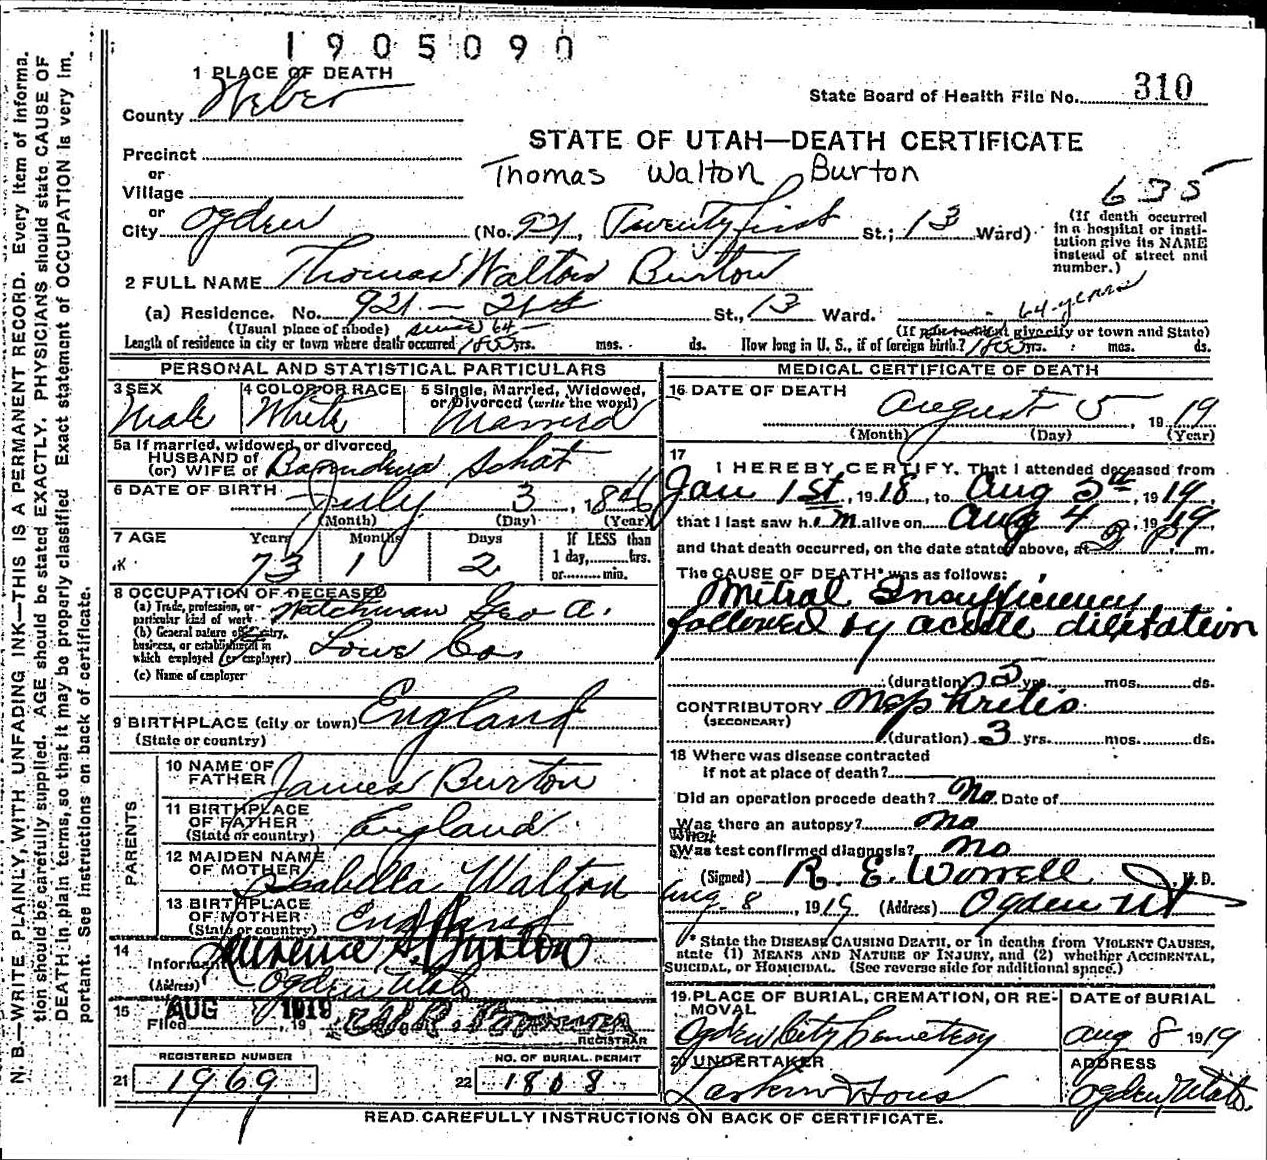 1905090
1 PLACE OF DEATH
County Weber
State Board of Health File No. 310
STATE OF UTAH—DEATH CERTIFICATE
Precinct
Thomas Walton Burton
or
Village
635
or
City Ogden (No. 921, Twenty first St.; 13 Ward)
(If death occurred in a hospital or institution give its NAME instead of street and number.)
2 FULL NAME Thomas Walton Burton
(a) Residence. No. 921 — 21st St., 13 Ward. 64 years
(Usual place of abode) since 64 (If nonresident give city or town and State)
Length of residence in city or town where death occurred yrs. mos. ds. How long in U. S., if of foreign birth? yrs. mos. ds.
PERSONAL AND STATISTICAL PARTICULARS
3 SEX 4 COLOR OR RACE 5 Single, Married, Widowed,
or Divorced (write the word)
Male White Married
5a If married, widowed, or divorced
HUSBAND of
(or) WIFE of Schat
6 DATE OF BIRTH July 3, 1846
(Month) (Day) (Year)
7 AGE Years Months Days If LESS than
1 day, hrs.
or min.
73 1 2
8 OCCUPATION OF DECEASED
(a) Trade, profession, or
particular kind of work Watchman Geo A.
(b) General nature of industry,
business, or establishment in
which employed (or employer) Lowe Co.
(c) Name of employer
9 BIRTHPLACE (city or town) England
(State or country)
PARENTS
10 NAME OF
FATHER James Burton
11 BIRTHPLACE
OF FATHER England
(State or country)
12 MAIDEN NAME
OF MOTHER Isabella Walton
13 BIRTHPLACE
OF MOTHER England
(State or country)
14
Informant Burton
(Address) Ogden Utah
15 AUG 1919
Filed , 19
REGISTRAR
REGISTERED NUMBER NO. OF BURIAL PERMIT
21 1969 22 1808
MEDICAL CERTIFICATE OF DEATH
16 DATE OF DEATH
August 5, 1919
(Month) (Day) (Year)
17
I HEREBY CERTIFY, That I attended deceased from
Jan 1st, 1918, to Aug 5th, 1919,
that I last saw him alive on Aug 4, 1919
and that death occurred, on the date stated above, at 3 P. m.
The CAUSE OF DEATH* was as follows:
Mitral Insufficiency
followed by acute dilatation
(duration) yrs. mos. ds.
CONTRIBUTORY Nephritis
(SECONDARY)
(duration) 3 yrs. mos. ds.
18 Where was disease contracted
If not at place of death?
Did an operation precede death? No Date of
Was there an autopsy? No
What
Was test confirmed diagnosis? No
(Signed) R. E. Worrell M. D.
Aug 8, 1919 (Address) Ogden Ut
* State the DISEASE CAUSING DEATH, or in deaths from VIOLENT CAUSES,
state (1) MEANS AND NATURE OF INJURY, and (2) whether ACCIDENTAL,
SUICIDAL, or HOMICIDAL. (See reverse side for additional space.)
19 PLACE OF BURIAL, CREMATION, OR RE- DATE of BURIAL
MOVAL
Ogden City Cemetery Aug 8 1919
20 UNDERTAKER ADDRESS
Larkin & Sons Ogden, Utah.
READ CAREFULLY INSTRUCTIONS ON BACK OF CERTIFICATE.
N. B.—WRITE PLAINLY, WITH UNFADING INK—THIS IS A PERMANENT RECORD. Every item of informa-
tion should be carefully supplied. AGE should be stated EXACTLY. PHYSICIANS should state CAUSE OF
DEATH in plain terms, so that it may be properly classified. Exact statement of OCCUPATION is very im-
portant. See instructions on back of certificate.